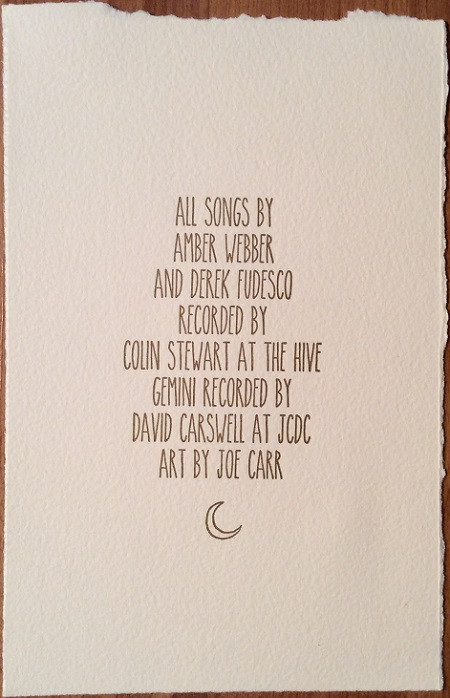 ALL SONGS BY
AMBER WEBBER
AND DEREK FUDESCO
RECORDED BY
COLIN STEWART AT THE HIVE
GEMINI RECORDED BY
DAVID CARSWELL AT JCDC
ART BY JOE CARR